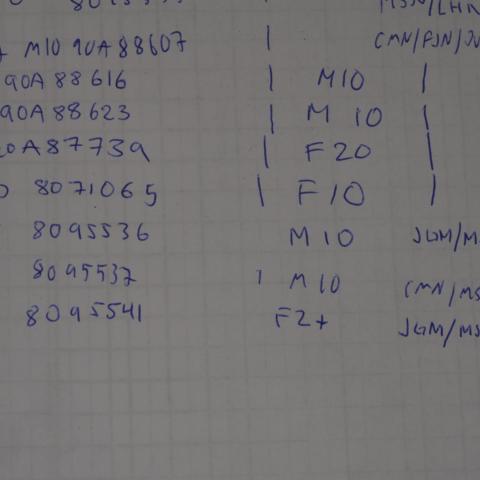 M10 90A88607 | CMN/FJN/JV
90A 88616 | M10 |
90A 88623 | M 10 |
0A87739 | F20 |
8071065 | F10 |
8095536 M10 JGM/M
8095537 | M10 CMN/MS
8095541 F2+ JGM/MS